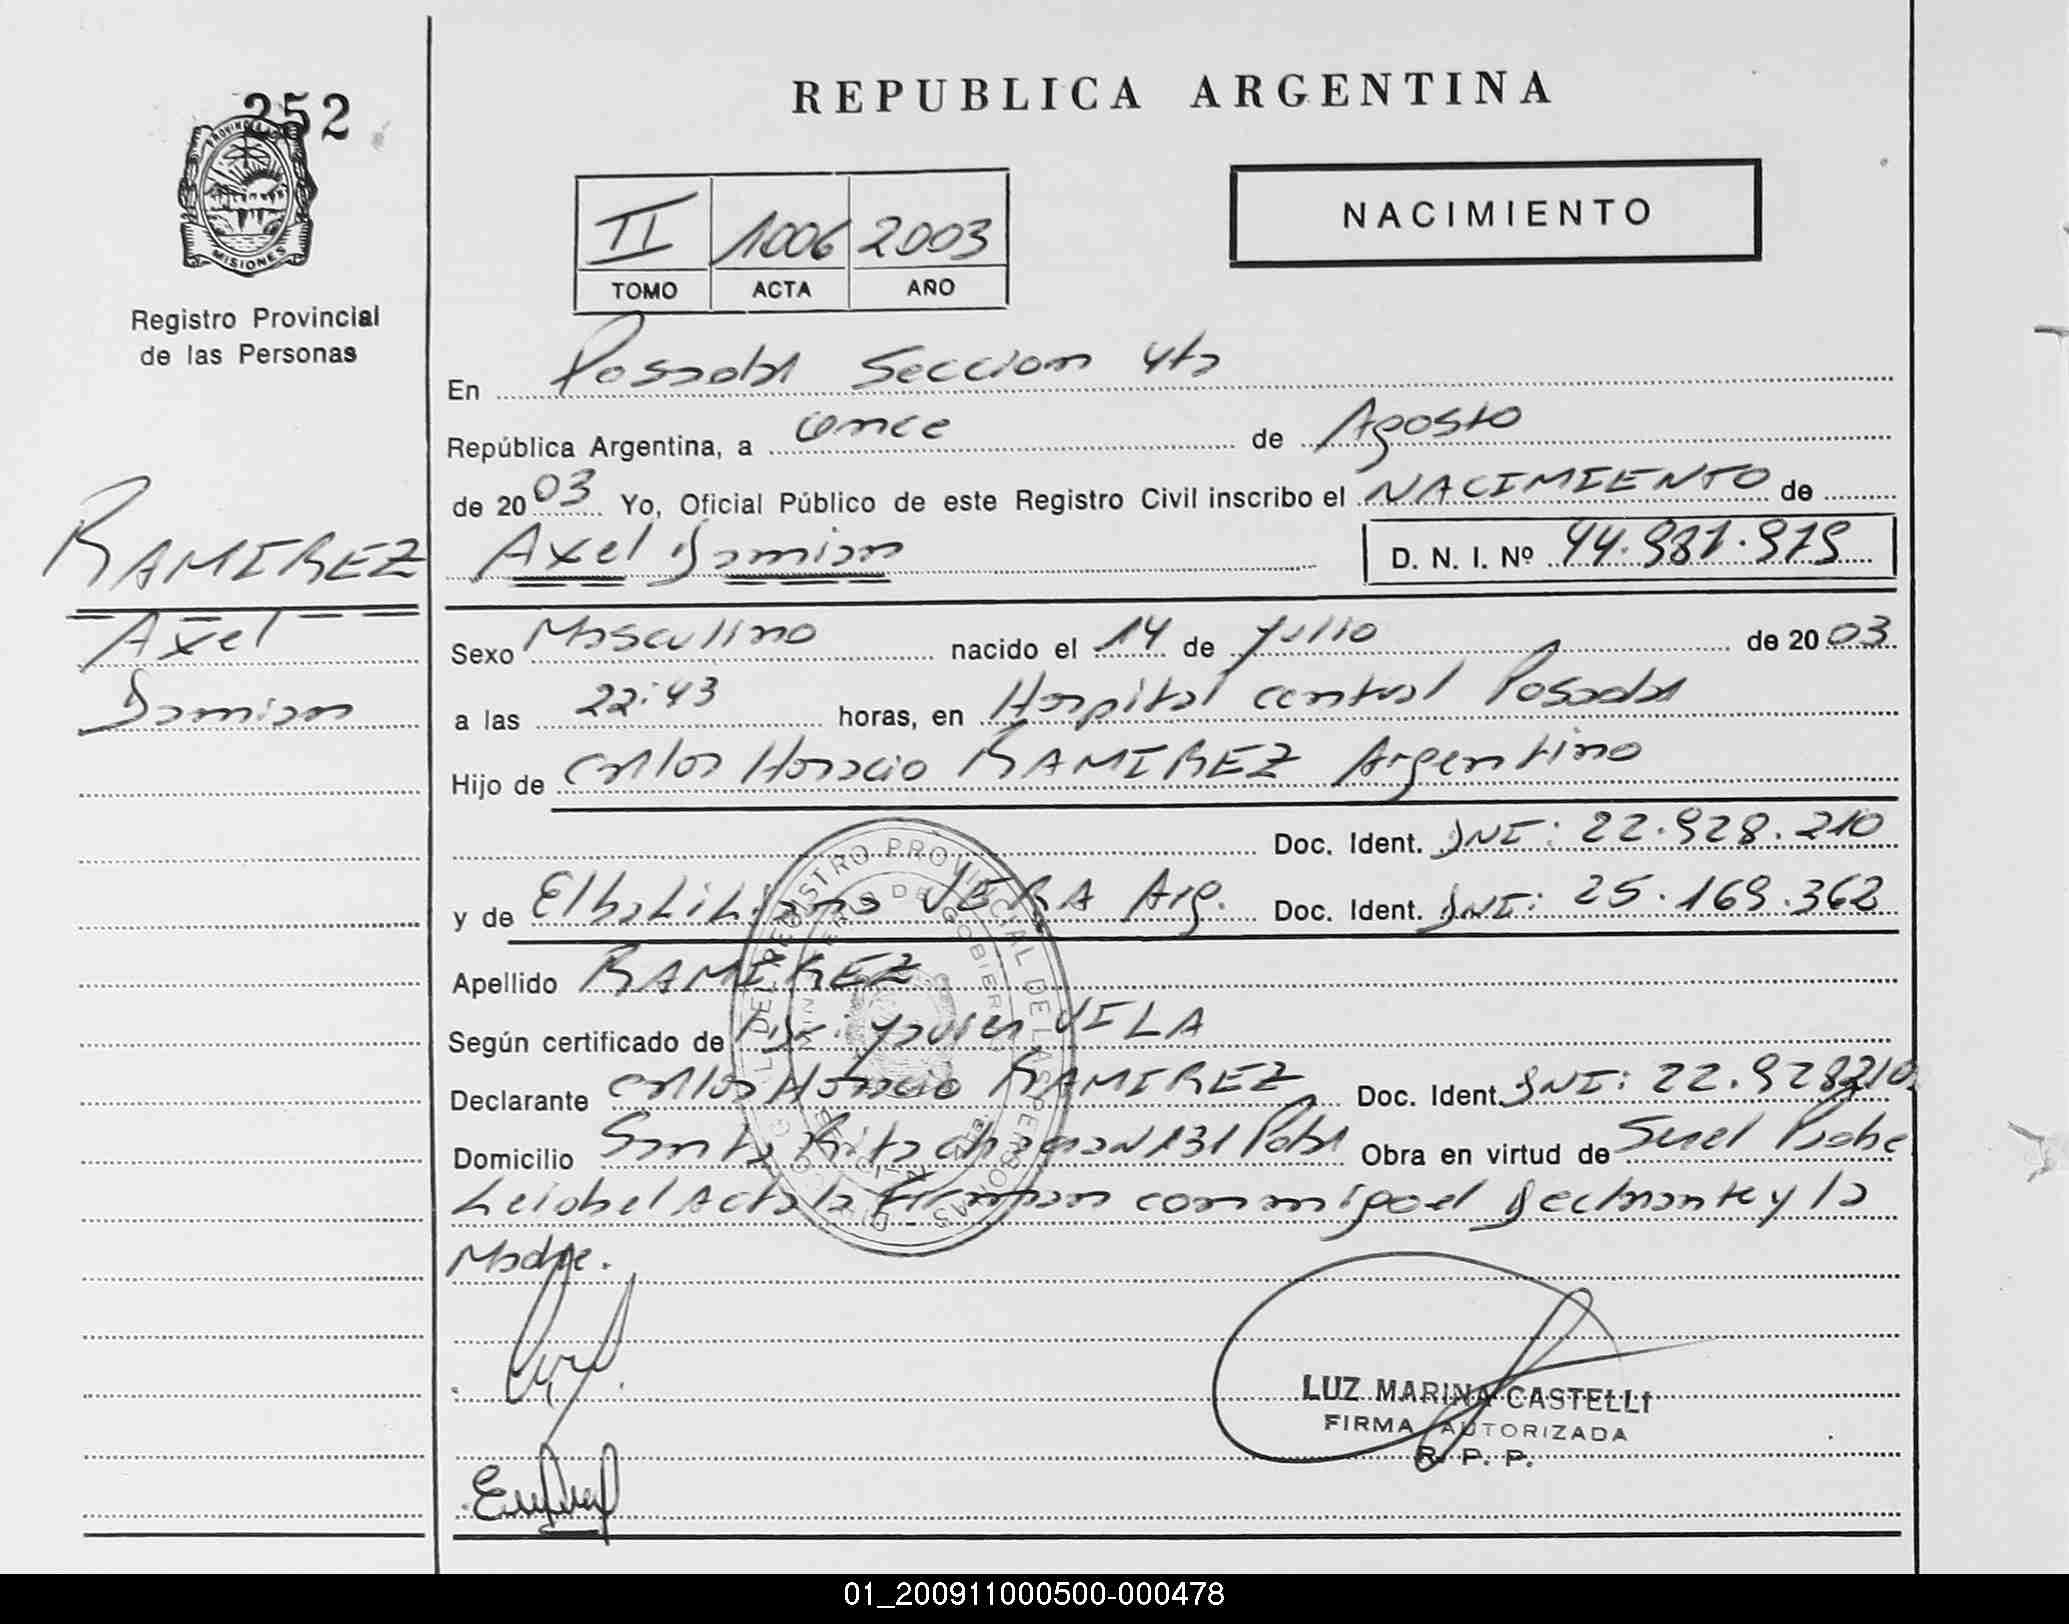 252
PROVINCIA DE
MISIONES
Registro Provincial
de las Personas
RAMIREZ
Axel
Damian
REPUBLICA ARGENTINA
II 1006 2003
TOMO ACTA AÑO
NACIMIENTO
En Posadas Seccion 4ta
República Argentina, a once de Agosto
de 2003 Yo, Oficial Público de este Registro Civil inscribo el NACIMIENTO de
Axel Damian D. N. I. Nº 44.981.979
Sexo Masculino nacido el 14 de Julio de 2003
a las 22:43 horas, en Hospital central Posadas
Hijo de Carlos Horacio RAMIREZ Argentino
Doc. Ident. DNI: 22.928.210
y de Elba Liliana VERA Arg. Doc. Ident. DNI: 25.169.362
Apellido RAMIREZ
Según certificado de Dr: Javier VILA
Declarante Carlos Horacio RAMIREZ Doc. Ident. DNI: 22.928210
Domicilio Santa Rita chacra N131 Pdas Obra en virtud de Ser el Padre
Leida el Acta la Firman conmigo el Declarante y la
Madre.
REGISTRO PROVINCIAL DE LAS PERSONAS
LUZ MARINA CASTELLI
FIRMA AUTORIZADA
R. P. P.
01_200911000500-000478